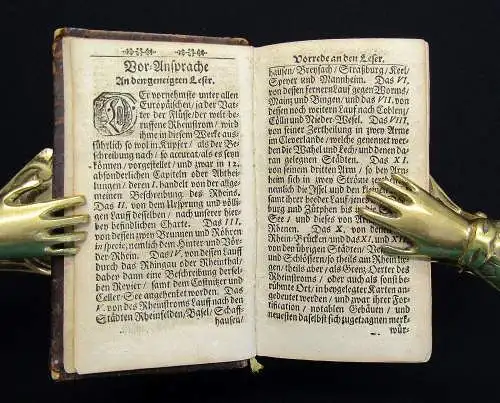 Vor-Ansprache
An den geneigten Leser.
DEr vornehmste unter allen
Europäischen / ja der Vat-
ter der Flüsse / der welt be-
ruffene Rheinstrom / wird
ihme in diesem Werke aus-
führlich so wol in Kupfer / als der
Beschreibung nach / so accurat / als es seyn
können / vorgestellet / und zwar in 12.
absonderlichen Capiteln oder Abthei-
lungen / deren I. handelt von der allge-
meinen Beschreibung des Rheins.
Das II. von dem Ursprung und völli-
gen Lauff desselben / nach unserer hier-
bey befindlichen Charte. Das III.
von dessen zwey Brunnen und Röhren
in specie, nemlich dem Hinter- und Vör-
der Rhein. Das IV. von dessen Lauff
durch das Rhingäu oder Rheinthal /
dabey dann eine Beschreibung dersel-
ben Revier / samt dem Costnitzer und
Celler-See angehenket worden. Das
V. von des Rheinstroms Lauff nach den
Städten Rheinfelden / Basel / Schaff-
hausen /
Vorrede an den Leser.
hausen / Breysach / Straßburg / Keel /
Speyer und Mannheim. Das VI.
von dessen fernern Lauff gegen Worms /
Mainz und Bingen / und das VII. von
dessen noch weitern Lauff nach Coblenz /
Cölln und Nieder-Wesel. Das VIII.
von seiner Zertheilung in zwey Arme
im Cleverlande / welche genennet wer-
den die Wahel und Lech / und denen da-
ran gelegnen Städten. Das XI.
von seinem dritten Arm / so bey Arn-
heim sich in zwey Ströme
nemlich die Yssel und den kleinen
samt ihrer beeder Lauf
burg und Zütphen bis
See / und dieses von Arn
Rhenen. Das X. von den
Rhein-Brücken / und das XI. und XII.
von den übrigen Städten / Vest
und Schlössern / so theils am Rhein lie-
gen / theils aber / als Grenz-Oerter des
Rheinstroms / oder auch als sonst be-
rühmte Ort / in beygelegter Karten an-
gedeutet werden / und zwar ihrer For-
tification, notablen Gebäuen / und
neuesten daselbst sich zugetragnen merk-
wür-